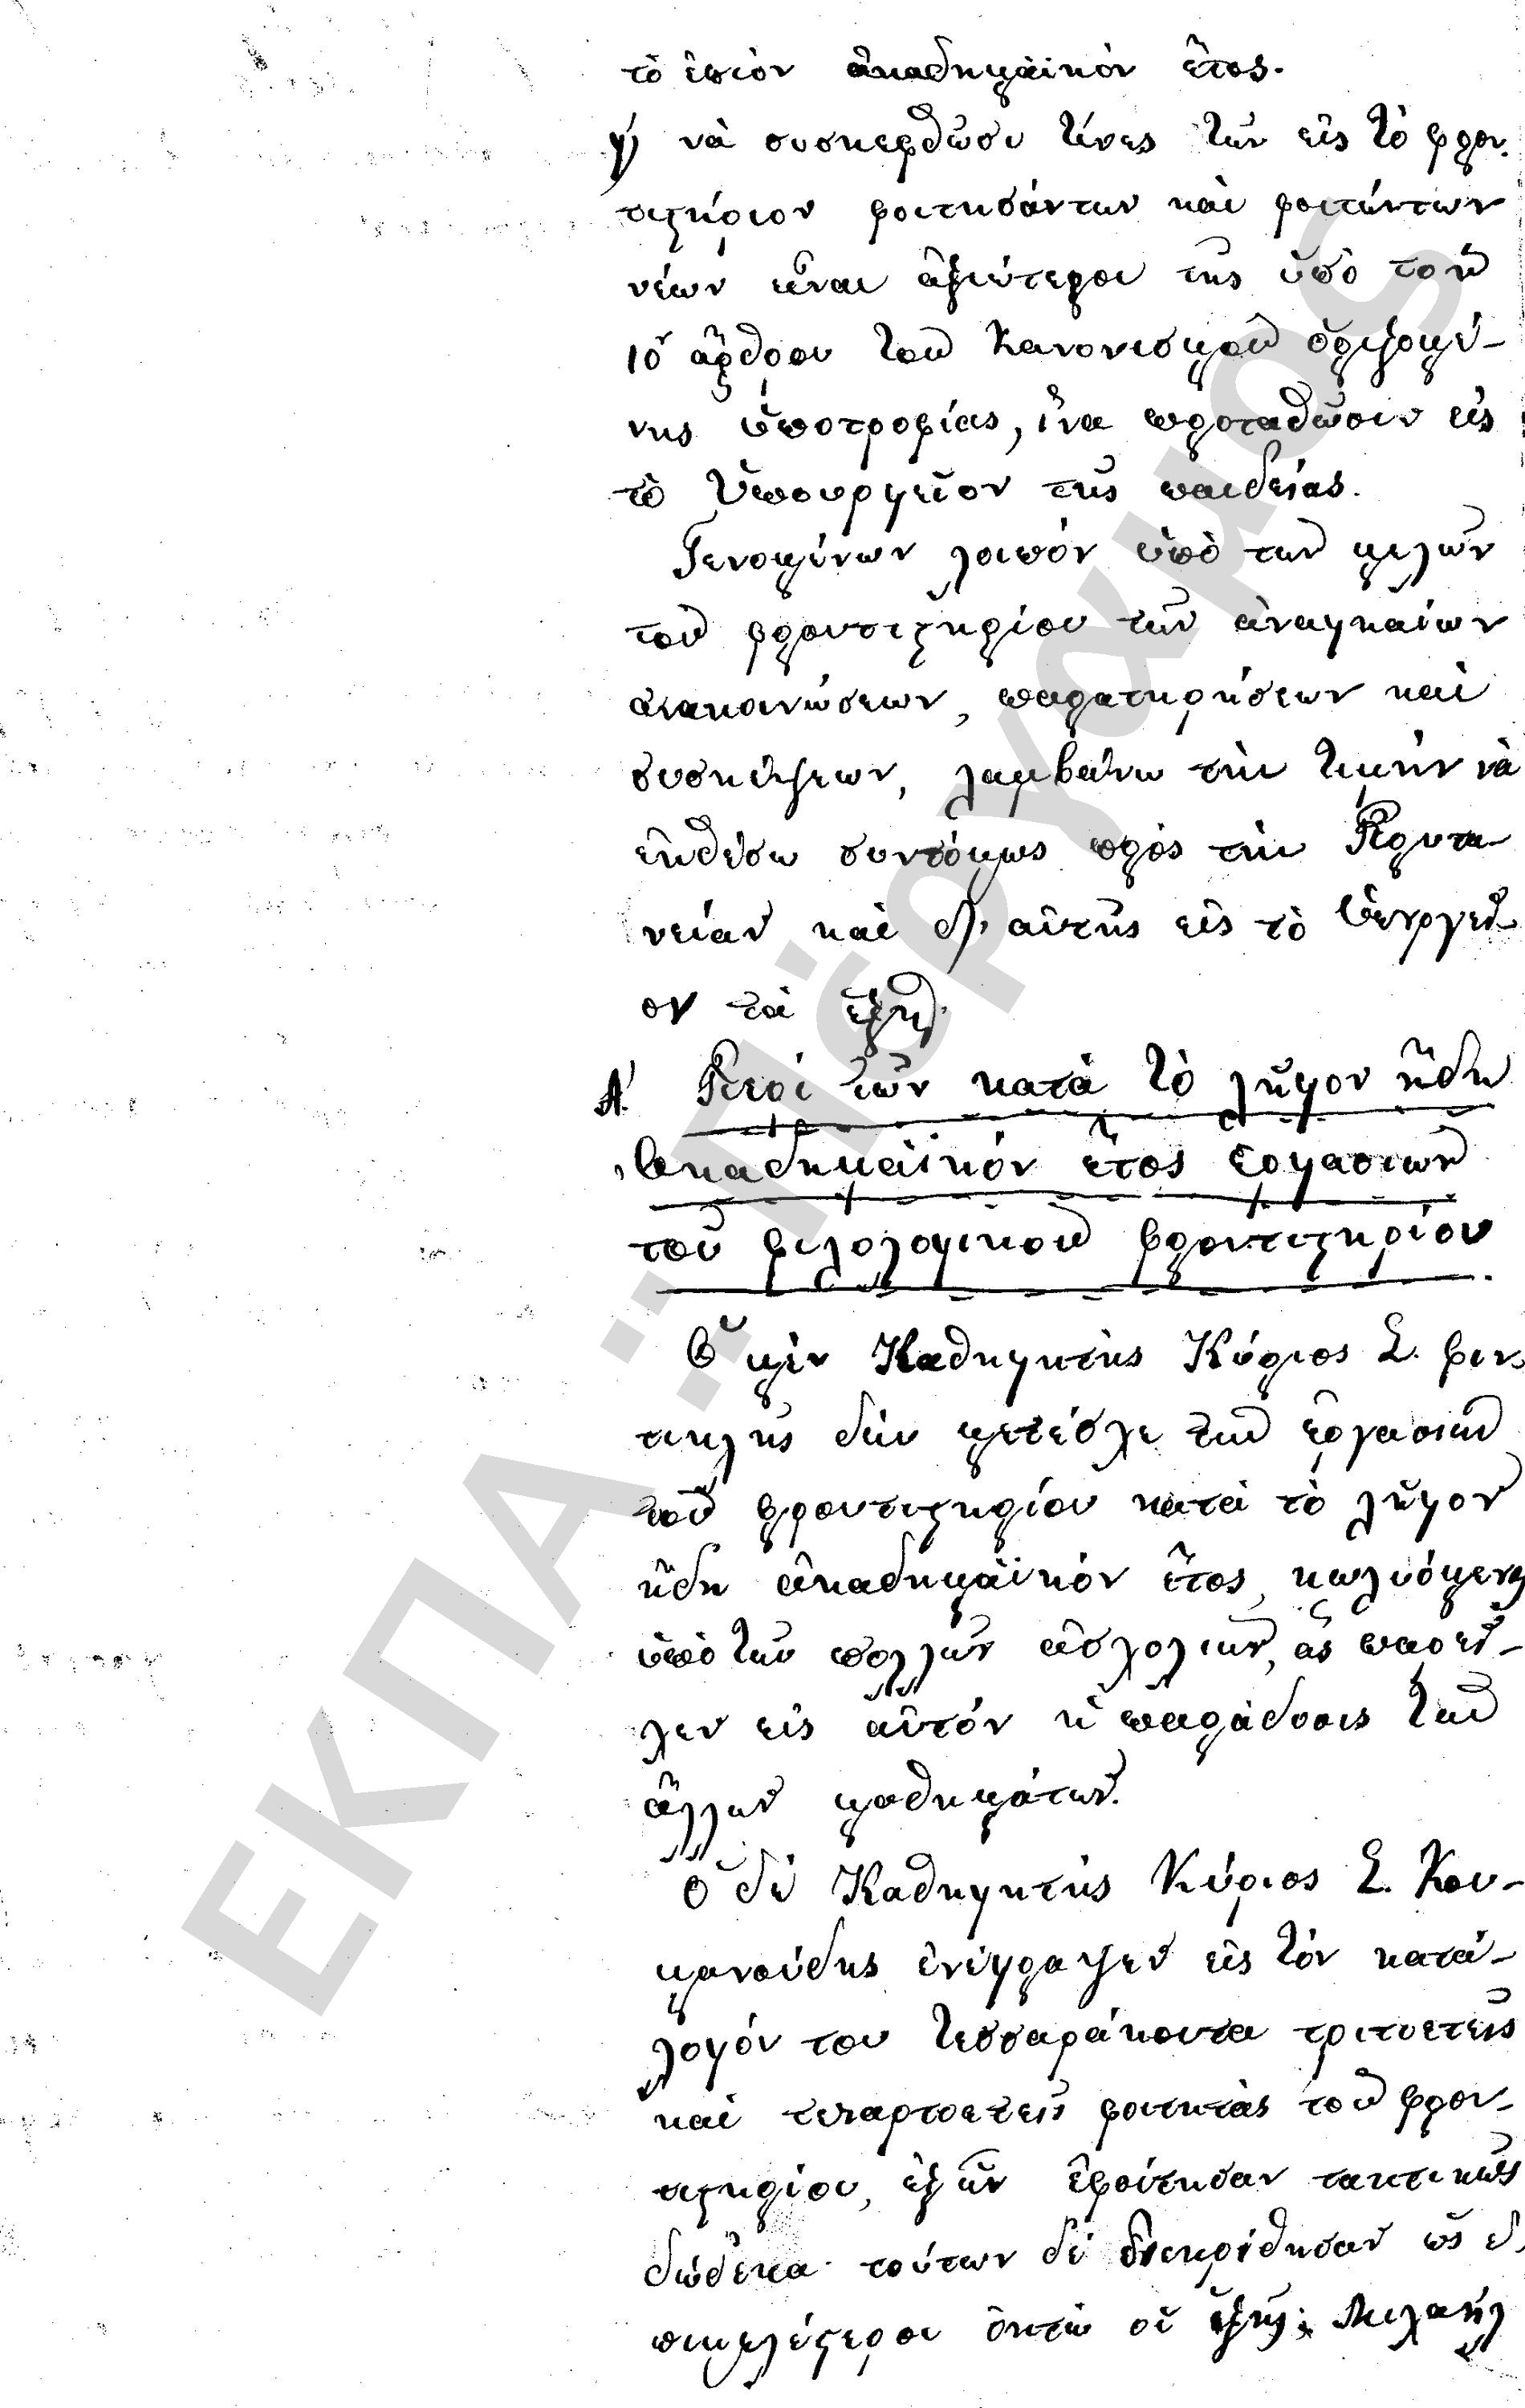 τὸ ἐπιὸν ἀκαδημαϊκὸν ἔτος.
γ) νὰ συσκεφθῶσι τίνες τῶν εἰς τὸ φρον-
τιστήριον φοιτησάντων καὶ φοιτώντων
νέων εἶναι ἀξιώτεροι τῆς ὑπὸ τοῦ
ιδ' ἄρθρου τοῦ Κανονισμοῦ ὁριζομέ-
νης ὑποτροφίας, ἵνα προταθῶσιν εἰς
τὸ Ὑπουργεῖον τῆς παιδείας.
Γενομένων λοιπόν ὑπὸ τῶν μελῶν
τοῦ φροντιστηρίου τῶν ἀναγκαίων
ἀνακοινώσεων, παρατηρήσεων καὶ
συσκέψεων, λαμβάνω τὴν τιμὴν νὰ
ἐκθέσω συντόμως πρὸς τὴν Πρυτα-
νείαν καὶ δι' αὐτῆς εἰς τὸ Ὑπουργεῖ-
ον τὰ ἑξῆς.
Α'. Περὶ τῶν κατὰ τὸ λῆγον ἤδη
Ἀκαδημαϊκόν ἔτος ἐργασιῶν
τοῦ φιλολογικοῦ φροντιστηρίου.
Ὁ μὲν Καθηγητὴς Κύριος Σ. Φιν-
τικλῆς δὲν μετέσχε τῶν ἐργασιῶν
τοῦ φροντιστηρίου κατὰ τὸ λῆγον
ἤδη ἀκαδημαϊκόν ἔτος, κωλυόμενος
ὑπὸ τῶν πολλῶν ἀσχολιῶν, ἃς παρεῖ-
χεν εἰς αὐτόν ἡ παράδοσις τῶν
ἄλλων μαθημάτων.
Ὁ δὲ Καθηγητὴς Κύριος Σ. Κου-
μανούδης ἐνέγραψεν εἰς τὸν κατά-
λογόν του τεσσαράκοντα τριτοετεῖς
καὶ τεταρτοετεῖς φοιτητὰς τοῦ φρον-
τιστηρίου, ἐξ ὧν ἐφοίτησαν τακτικῶς
δώδεκα· τούτων δὲ διεκρίθησαν ὡς ἐ-
πιμελέστεροι ὀκτὼ οἱ ἑξῆς: Μιχαὴλ